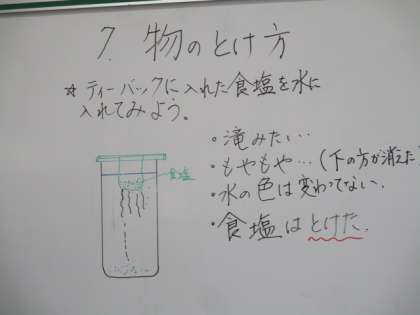 7. 物のとけ方
☆ ティーバックに入れた食塩を水に
入れてみよう。
食塩
・滝みたい…
・もやもや…(下の方が消えた)
・水の色は変わってない.
・食塩はとけた.